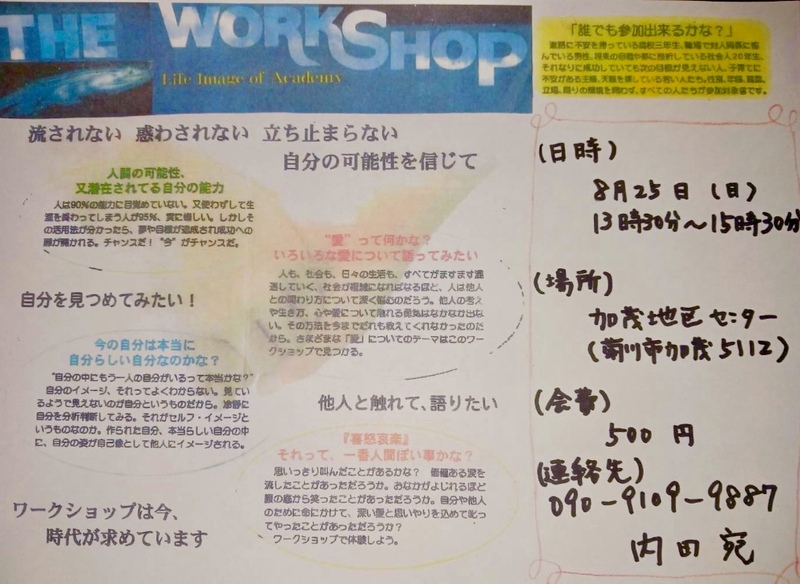 THE WORKSHOP
Life Image of Academy
流されない 惑わされない 立ち止まらない
自分の可能性を信じて
人間の可能性、
又潜在されてる自分の能力
人は90%の能力に目覚めていない。又使わずして生
涯を終わってしまう人が95%、実に惜しい。しかしそ
の活用法が分かったら、夢や目標が達成され成功への
扉が開かれる。チャンスだ!“今”がチャンスだ。
“愛”って何かな?
いろいろな愛について語ってみたい
人も、社会も、日々の生活も、すべてがますます進
していく、社会が複雑になればなるほど、人は他人
との関わり方について深く悩むのだろう。他人の考え
や生き方、心や愛について触れる勇気はなかなか出な
い。その方法を今までだれも教えてくれなかったのだ
から。さまざまな「愛」についてのテーマはこのワー
クショップで見つかる。
自分を見つめてみたい!
今の自分は本当に
自分らしい自分なのかな?
“自分の中にもう一人の自分がいるって本当かな?”
自分のイメージ、それってよくわからない。見てい
るようで見えないのが自分というものだから。冷静に
自分を分析判断してみる。それがセルフ・イメージと
いうものなのか。作られた自分、本当らしい自分の中
に、自分の姿が自己像として他人にイメージされる。
他人と触れて、語りたい
『喜怒哀楽』
それって、一番人間ぽい事かな?
思いっきり叫んだことがあるかな? 価値ある涙を
流したことがあっただろうか。おなかがよじれるほど
腹の底から笑ったことがあっただろうか。自分や他人
のために命にかけて、深い愛と思いやりを込めて叱っ
てやったことがあっただろうか?
ワークショップで体験しよう。
ワークショップは今、
時代が求めています
「誰でも参加出来るかな?」
進路に不安を持っている高校三年生、職場で対人関係に悩
んでいる男性、将来の目標や夢に挫折している社会人20年生、
それなりに成功していても次の目標が見えない人、子育てに
不安がある主婦、天職を探している若い人たち。性別、年齢、職業、
立場、周りの環境を問わず、すべての人たちが参加対象者です。
(日時)
8月25日(日)
13時30分〜15時30分
(場所)
加茂地区センター
(菊川市加茂5112)
(会費)
500円
(連絡先)
090-9109-9887
内田 宛